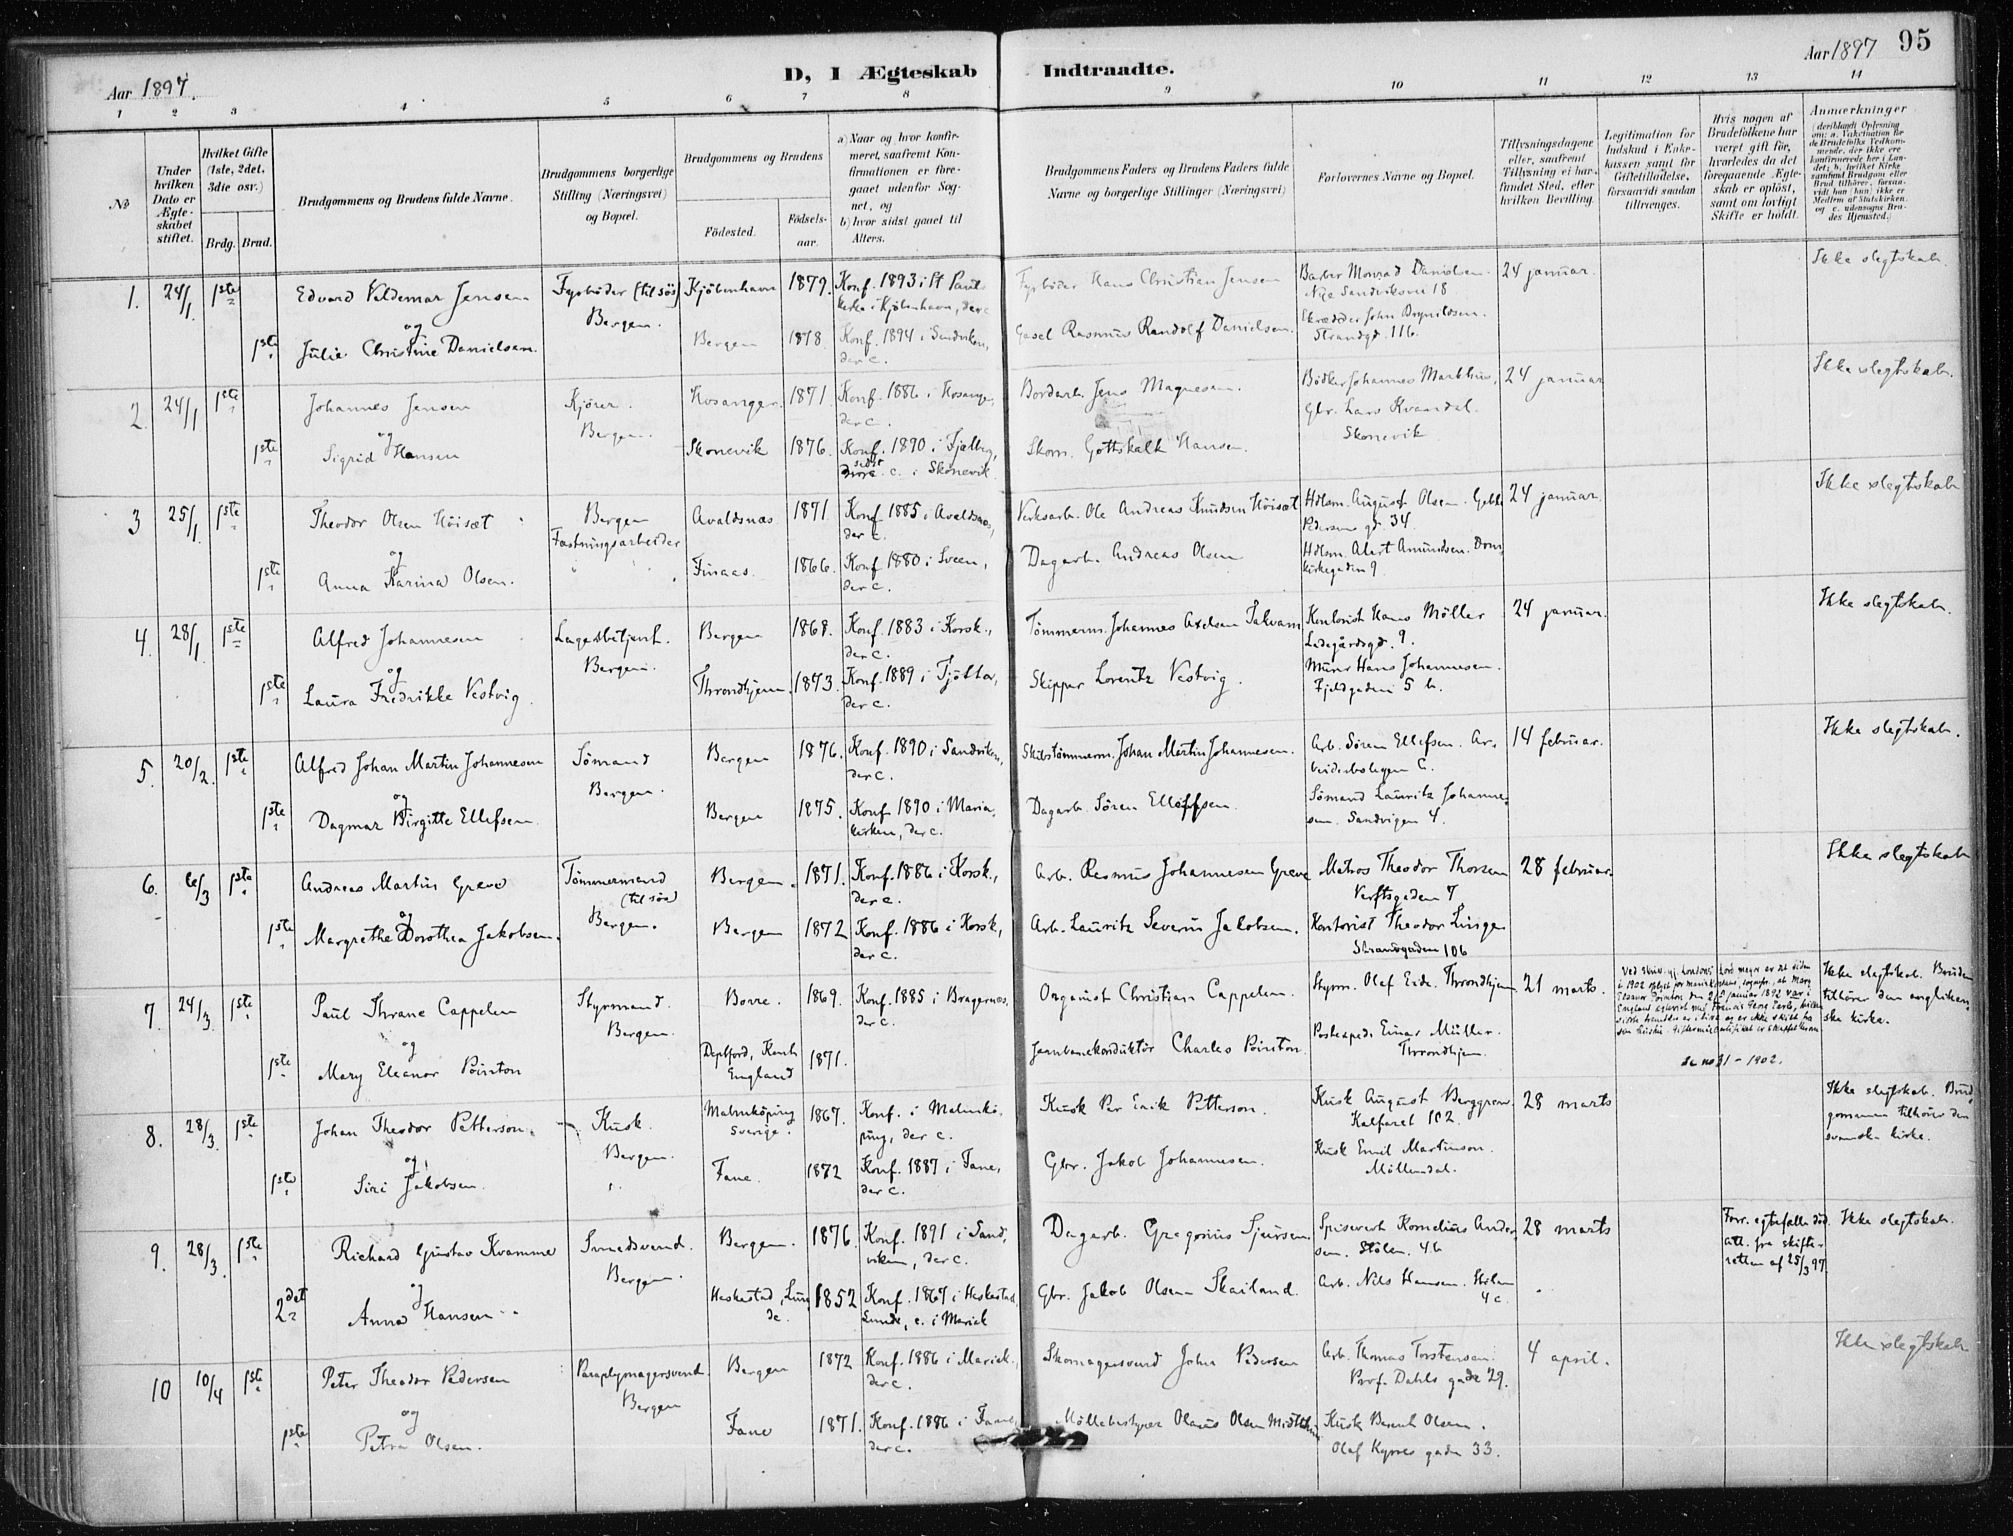 Aar 1897.
D, I Ægteskab Indtraadte.
Aar 1897 95
1 2 3 4 5 6 7 8 9 10 11 12 13 14
No
Under hvilken Dato er Ægteskabet stiftet.
Hvilket Gifte (1ste, 2det, 3die osv.)
Brdg. Brud.
Brudgommens og Brudens fulde Navne.
Brudgommens borgerlige Stilling (Næringsvei) og Bopæl.
Brudgommens og Brudens
Fødested.
Fødselsaar.
a) Naar og hvor konfirmeret, saafremt Konfirmationen er foregaaet udenfor Sognet, og
b) hvor sidst gaaet til Alters.
Brudgommens Faders og Brudens Faders fulde Navne og borgerlige Stillinger (Næringsvei)
Forlovernes Navne og Bopæl.
Tillysningsdagene eller, saafremt Tillysning ei har fundet Sted, efter hvilken Bevilling.
Legitimation for Indskud i Enkekassen samt for Giftetilladelse, forsaavidt saadan tiltrænges.
Hvis nogen af Brudefolkene har været gift før, hvorledes da det foregaaende Ægteskab er opløst, samt om lovligt Skifte er holdt.
Anmærkninger
(deriblandt Oplysning om: a. Vakcination for de Brudefolks Vedkommende, der ikke ere konfirmerede her i Landet; b. hvilket Kirkesamfund Brudgom eller Brud tilhører, forsaavidt han (hun) ikke er Medlem af Statskirken, og c. udensogns Brudes Hjemsted.)
1. 24/1 1ste Edvard Valdemar Jensen Fyrbøder (til søs) Bergen. Kjøbenhavn 1879. Konf. 1893 i St Pauls kirke i Kjøbenhavn, der c. Fyrbøder Hans Christian Jensen Barber Monrad Danielsen. Nye Sandviksvei 18 24 januar. Ikke slegtskab.
og
1ste Julie Christine Danielsen. Bergen 1878. Konf. 1894 i Sandviken, der c. Rasmus Randolf Danielsen. Skrædder John Brynildsen. Strandgd. 116.
2. 24/1 1ste Johannes Jensen Kjører. Bergen. Hosanger. 1871. Konf. 1886 i Hosanger, der c. Bordarb. Jens Magnesen. Bødker Johannes Markhus, 24 januar Ikke slegtskab.
og
1ste Sigrid Hansen Skonevik 1876. Konf. 1890 i Fjelberg, sidst c. i Skonevik. Skom. Gottskalk Hansen. Gbr. Lars Kvandal. Skonevik
3 25/1. 1ste Theodor Olsen Høisæt Bergen Fæstningsarbeider Avaldsnæs 1871 Konf. 1885 i Avaldsnæs, der c. Verksarb. Ole Andreas Knudsen Høisæt Hdlsm. August Olsen. Geble Pedersens gd. 34. 24 januar. Ikke slegtskab
og
1ste Anna Karina Olsen. Finaas. 1866. Konf 1880 i Sveen, der c. Dagarb. Andreas Olsen Hdlsm. Amundsen. Domkirkegaden 9.
4. 28/1. 1ste Alfred Johannesen Lagerbetjent. Bergen. Bergen 1868. Konf. 1883 i Korsk., der c. Tømmerm. Johannes Axelsen Takvam Kontorist Hans Möller Ladegårdsgd. 9. 24 januar. Ikke slegtskab.
og
1ste Laura Fredrikke Vestvig. Throndhjem. 1873. Konf. 1889 i Tjøtta, der c. Skipper Lorentz Vestvig. Murer Hans Johannesen. Fjeldgaden 5 b.
5. 20/2. 1ste Alfred Johan Martin Johannesen Sømand Bergen. Bergen 1876. Konf. 1890 i Sandviken, der c. Skibstømmerm. Johan Martin Johannesen. Arb. Søren Ellefsen. Arbeiderboligen C. 14 februar. Ikke slegtskab.
og
1ste Dagmar Birgitte Ellefsen. Bergen 1875. Konf 1890 i Mariakirken, der c. Dagarb. Søren Elleffsen. Sømand Lauritz Johannesen. Sandvigen 4.
6. 6/3 1ste Andreas Martin Greve Tømmermand (til søs) Bergen. Bergen. 1871. Konf. 1886 i Korsk., der c. Arb. Rasmus Johannesen Greve Matros Theodor Thorsen Verftsgaden 7 28 februar. Ikke slegtskab
og
1ste Margrethe Dorothea Jakobsen. Bergen 1872 Konf. 1886 i Korsk, der c. Arb. Lauritz Severin Jakobsen. Kontorist Theodor Linge Strandgaden 106
7. 24/3. 1ste Paul Thrane Cappelen Styrmand. Bergen. Borre. 1869. Konf. 1885 i Bragernæs, der c. Organist Christian Cappelen. Styrm. Olaf Eide. Throndhjem 21 marts. Ikke slegtskab. Bruden tilhører den anglikanske kirke.
og
1ste Mary Eleanor Pointon Deptford, Kent England 1871. Jernbanekonduktør Charles Pointon. Postexped. Einar Müller. Throndhjem. Se no 31 - 1902.
8. 28/3. 1ste Johan Theodor Petterson. Kusk. Bergen. Malmköping Sverige. 1867. Konf. i Malmköping, der c. Kusk Per Erik Petterson. Kusk August Berggren Kalfaret 102. 28 marts Ikke slegtskab. Brudgommen tilhører den svenske kirke.
og
1ste Siri Jakobsen. Fane. 1872 Konf. 1887 i Fane, der c. Gbr. Jakob Johannesen. Kusk Emil Martinson. Möllendal.
9. 28/3. 1ste Richard Gustav Kvamme Smedsvend. Bergen. Bergen. 1876. Konf. 1891 i Sandviken, der c. Dagarb. Gregorius Sjursen Spisevert Kornelius Andersen. Stölen. 46 28 marts Forr. egtefælle död att. fra skifteretten af 25/3 97. Ikke slegtskab.
og
2det Anna Hansen Heskestad, Lunde 1852 Konf. 1867 i Heskestad, Lunde, c. i Mariek Gbr. Jakob Olsen Skailand. Arb. Nils Hansen. Stölen 4c.
10 10/4 1ste Peter Theodor Pedersen Paraplymagersvend. Bergen Bergen 1872 Konf. 1886 i Mariek., der c. Skomagersvend John Pedersen Arb. Thomas Torstensen. Prof. Dahls gade 29. 4 april. Ikke slegtskab
og
1ste Petra Olsen. Fane 1871. Konf. 1886 i Fane, der c. Möllebestyrer Olaus Olsen Kusk Bernt Olsen. Olaf Kyrres gaden 33.